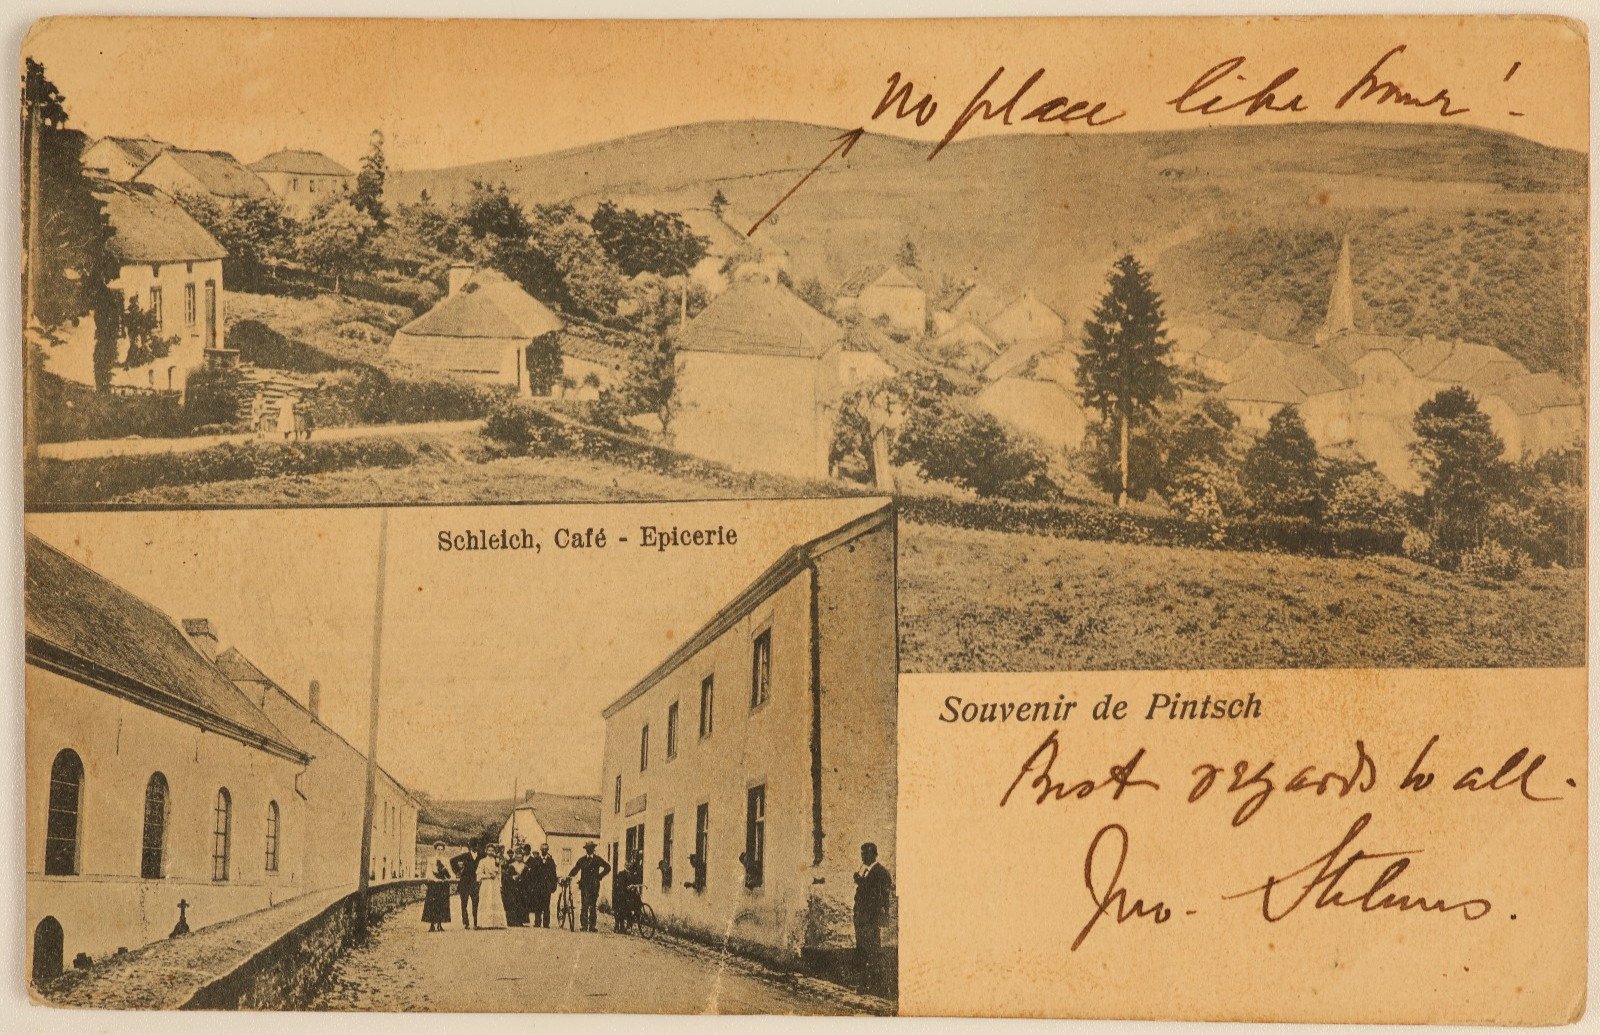 No place like home! -
Schleich, Café - Epicerie
Souvenir de Pintsch
Best regards to all.
Jno.